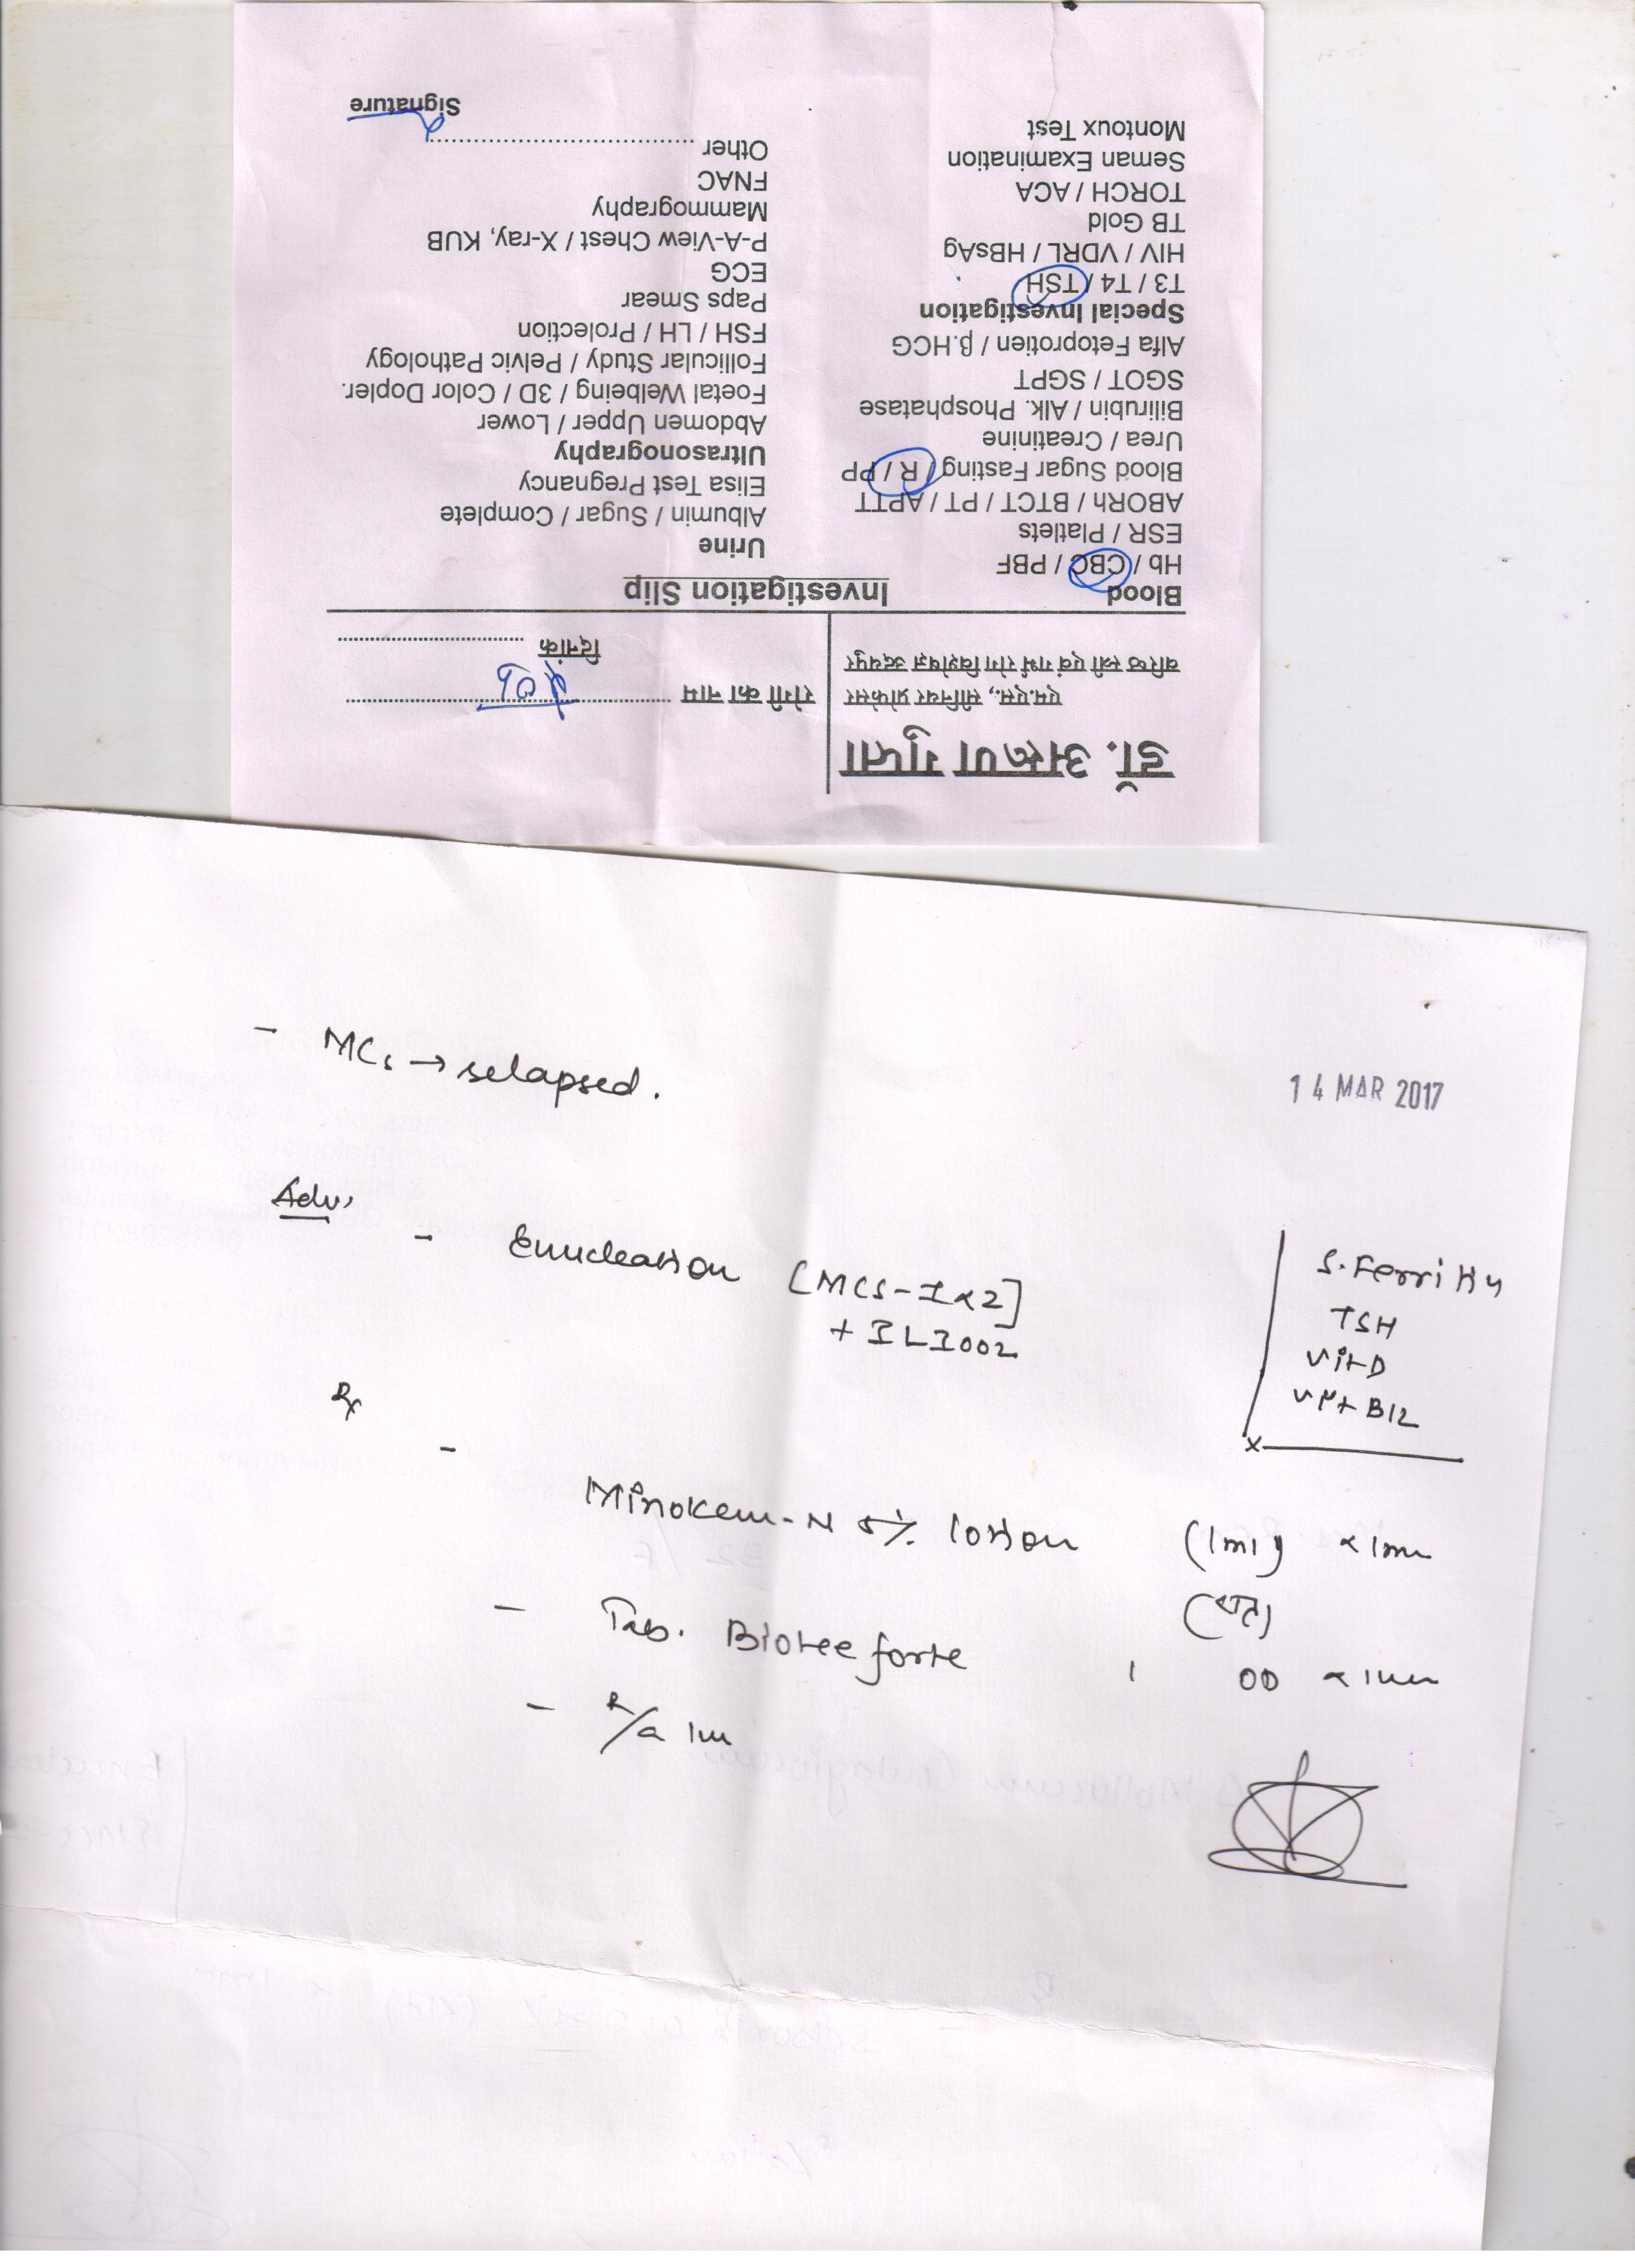 डॉ. अरूण गुप्ता
एम.एस., सीनियर प्रोफेसर
वरिष्ठ स्त्री एवं गर्भ रोग विशेषज्ञ उदयपुर
रोगी का नाम
दिनांक
Investigation Slip
Blood
Hb / CBC / PBF
ESR / Platlets
ABORh / BTCT / PT / APTT
Blood Sugar Fasting / R / PP
Urea / Creatinine
Bilirubin / Alk. Phosphatase
SGOT / SGPT
Alfa Fetoprotien / β.HCG
Special Investigation
T3 / T4 / TSH
HIV / VDRL / HBsAg
TB Gold
TORCH / ACA
Seman Examination
Montoux Test
Urine
Albumin / Sugar / Complete
Elisa Test Pregnancy
Ultrasonography
Abdomen Upper / Lower
Foetal Welbeing / 3D / Color Dopler.
Follicular Study / Pelvic Pathology
FSH / LH / Prolection
Paps Smear
ECG
P-A-View Chest / X-ray, KUB
Mammography
FNAC
Other
Signature
14 MAR 2017
- MCs → relapsed.
Adv,
- Enucleation [MCS-I x2]
+ ILI002
S. Ferritin
TSH
Vit D
Vit B12
Rx
- Minokem-N 5% lotion (1ml) x 1m
(रात)
- Tab. Biotee forte 1 OD x 1m
- R/a 1m